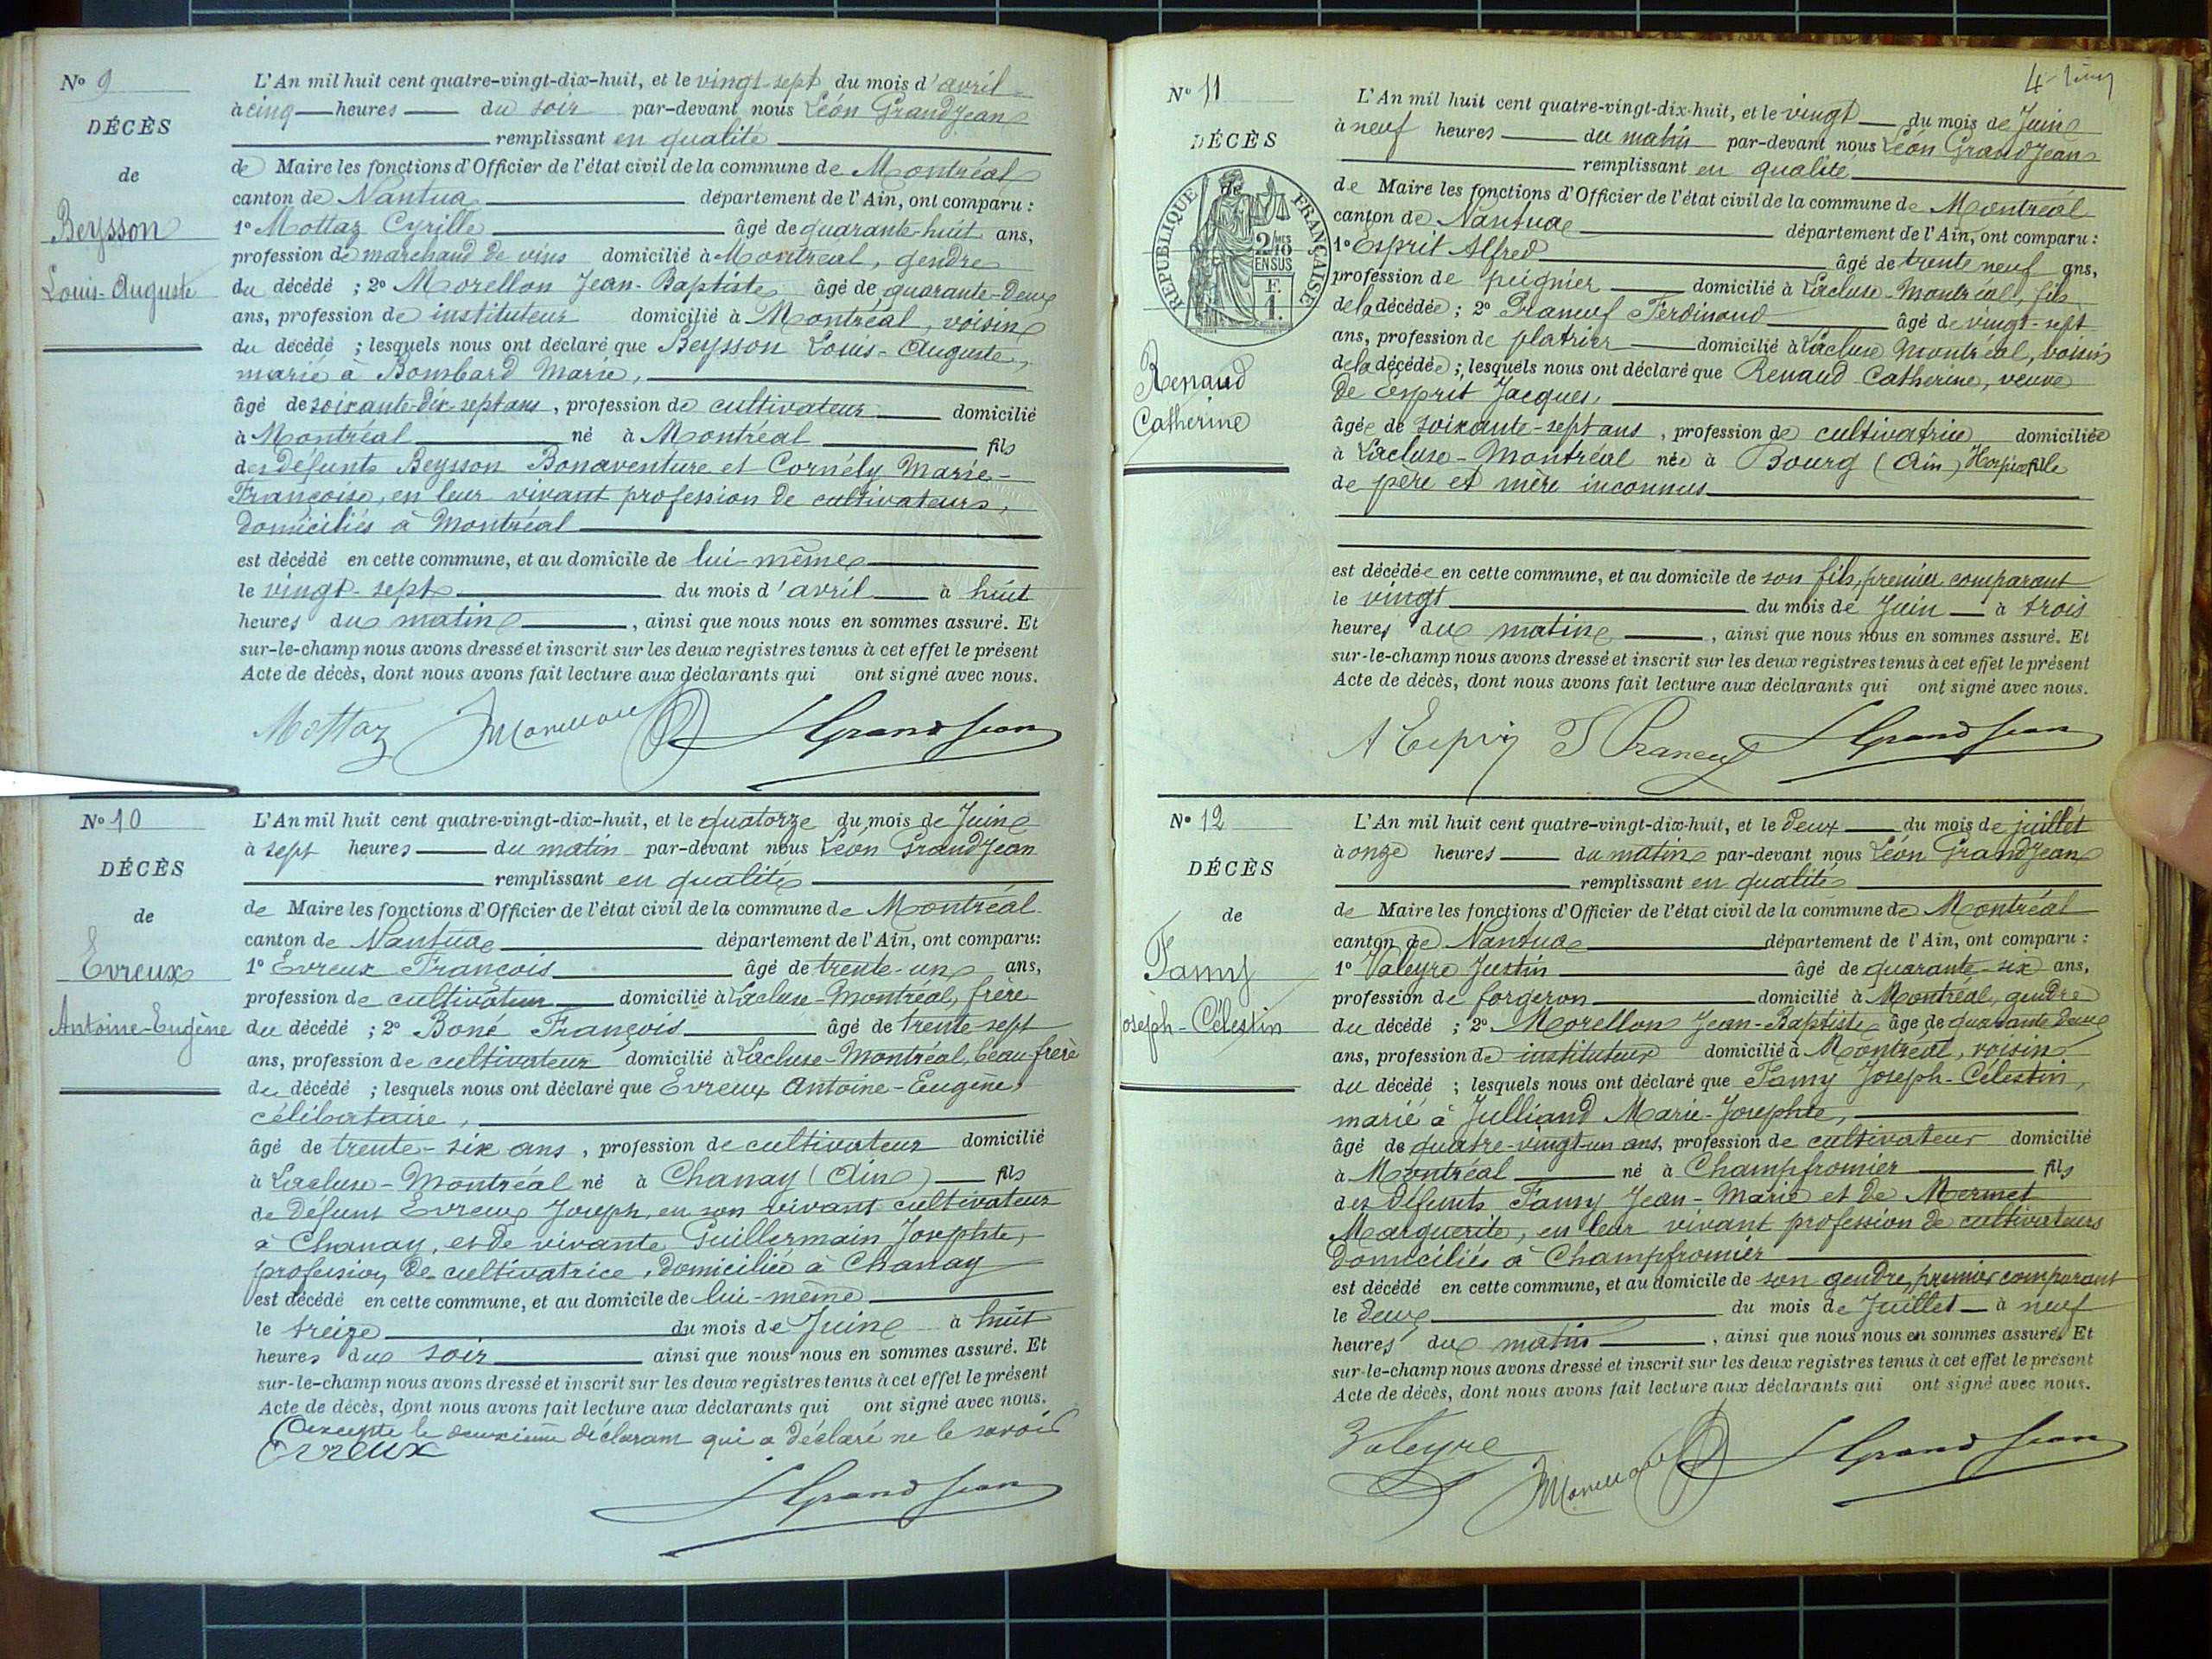 N° 9
DÉCÈS
de
Beysson
Louis-Auguste
L'An mil huit cent quatre-vingt-dix-huit, et le vingt-sept du mois d'avril
à cinq heures du soir par-devant nous Léon Grandjean
remplissant en qualité
de Maire les fonctions d'Officier de l'état civil de la commune de Montréal
canton de Nantua département de l'Ain, ont comparu :
1° Mottaz Cyrille âgé de quarante-huit ans,
profession de marchand de vins domicilié à Montréal, gendre
du décédé ; 2° Morellon Jean-Baptiste âgé de quarante-deux
ans, profession de instituteur domicilié à Montréal, voisin
du décédé ; lesquels nous ont déclaré que Beysson Louis-Auguste,
marié à Bombard Marie,
âgé de soixante-dix-sept ans, profession de cultivateur domicilié
à Montréal né à Montréal fils
des défunts Beysson Bonaventure et Cornély Marie-
Françoise, en leur vivant profession de cultivateurs,
domiciliés à Montréal
est décédé en cette commune, et au domicile de lui-même
le vingt-sept du mois d'avril à huit
heures du matin, ainsi que nous nous en sommes assuré. Et
sur-le-champ nous avons dressé et inscrit sur les deux registres tenus à cet effet le présent
Acte de décès, dont nous avons fait lecture aux déclarants qui ont signé avec nous.
Mottaz Morellon L Grandjean
N° 10
DÉCÈS
de
Evreux
Antoine-Eugène
L'An mil huit cent quatre-vingt-dix-huit, et le quatorze du mois de Juin
à sept heures du matin par-devant nous Léon Grandjean
remplissant en qualité
de Maire les fonctions d'Officier de l'état civil de la commune de Montréal
canton de Nantua département de l'Ain, ont comparu:
1° Evreux François âgé de trente-un ans,
profession de cultivateur domicilié à Lacluse-Montréal, frère
du décédé ; 2° Boné François âgé de trente-sept
ans, profession de cultivateur domicilié à Lacluse-Montréal, beau-frère
du décédé ; lesquels nous ont déclaré que Evreux Antoine-Eugène,
célibataire,
âgé de trente-six ans, profession de cultivateur domicilié
à Lacluse-Montréal né à Chanay (Ain) fils
de défunt Evreux Joseph, en son vivant cultivateur
à Chanay, et de vivante Guillermain Josephte,
profession de cultivatrice, domiciliée à Chanay
est décédé en cette commune, et au domicile de lui-même
le treize du mois de Juin à huit
heures du soir ainsi que nous nous en sommes assuré. Et
sur-le-champ nous avons dressé et inscrit sur les deux registres tenus à cet effet le présent
Acte de décès, dont nous avons fait lecture aux déclarants qui ont signé avec nous.
excepté le deuxième déclarant qui a déclaré ne le savoir
Evreux
L Grandjean
4
N° 11
DÉCÈS
de
RÉPUBLIQUE FRANÇAISE
2/10 MES
EN SUS
F.
1.
Renaud
Catherine
L'An mil huit cent quatre-vingt-dix-huit, et le vingt du mois de Juin
à neuf heures du matin par-devant nous Léon Grandjean
remplissant en qualité
de Maire les fonctions d'Officier de l'état civil de la commune de Montréal
canton de Nantua département de l'Ain, ont comparu :
1° Esprit Alfred âgé de trente neuf ans,
profession de peignier domicilié à Lacluse-Montréal, fils
de la décédée ; 2° Praneuf Ferdinand âgé de vingt-sept
ans, profession de platrier domicilié à Lacluse Montréal, voisin
de la décédée ; lesquels nous ont déclaré que Renaud Catherine, veuve
de Esprit Jacques,
âgée de soixante-sept ans, profession de cultivatrice domiciliée
à Lacluse-Montréal née à Bourg (Ain) Hospice fille
de père et mère inconnus
est décédée en cette commune, et au domicile de son fils, premier comparant
le vingt du mois de Juin à trois
heures du matin, ainsi que nous nous en sommes assuré. Et
sur-le-champ nous avons dressé et inscrit sur les deux registres tenus à cet effet le présent
Acte de décès, dont nous avons fait lecture aux déclarants qui ont signé avec nous.
A Esprit F Praneuf L Grandjean
N° 12
DÉCÈS
de
Famy
Joseph-Célestin
L'An mil huit cent quatre-vingt-dix-huit, et le deux du mois de juillet
à onze heures du matin par-devant nous Léon Grandjean
remplissant en qualité
de Maire les fonctions d'Officier de l'état civil de la commune de Montréal
canton de Nantua département de l'Ain, ont comparu :
1° Valeyre Justin âgé de quarante-six ans,
profession de forgeron domicilié à Montréal, gendre
du décédé ; 2° Morellon Jean-Baptiste âgé de quarante deux
ans, profession de instituteur domicilié à Montréal, voisin
du décédé ; lesquels nous ont déclaré que Famy Joseph-Célestin,
marié à Julliand Marie-Josephte,
âgé de quatre-vingt-un ans, profession de cultivateur domicilié
à Montréal né à Champfromier fils
des défunts Famy Jean-Marie et de Mermet
Marguerite, en leur vivant profession de cultivateurs
domiciliés à Champfromier
est décédé en cette commune, et au domicile de son gendre, premier comparant
le deux du mois de Juillet à neuf
heures du matin, ainsi que nous nous en sommes assuré. Et
sur-le-champ nous avons dressé et inscrit sur les deux registres tenus à cet effet le présent
Acte de décès, dont nous avons fait lecture aux déclarants qui ont signé avec nous.
Valeyre Morellon L Grandjean